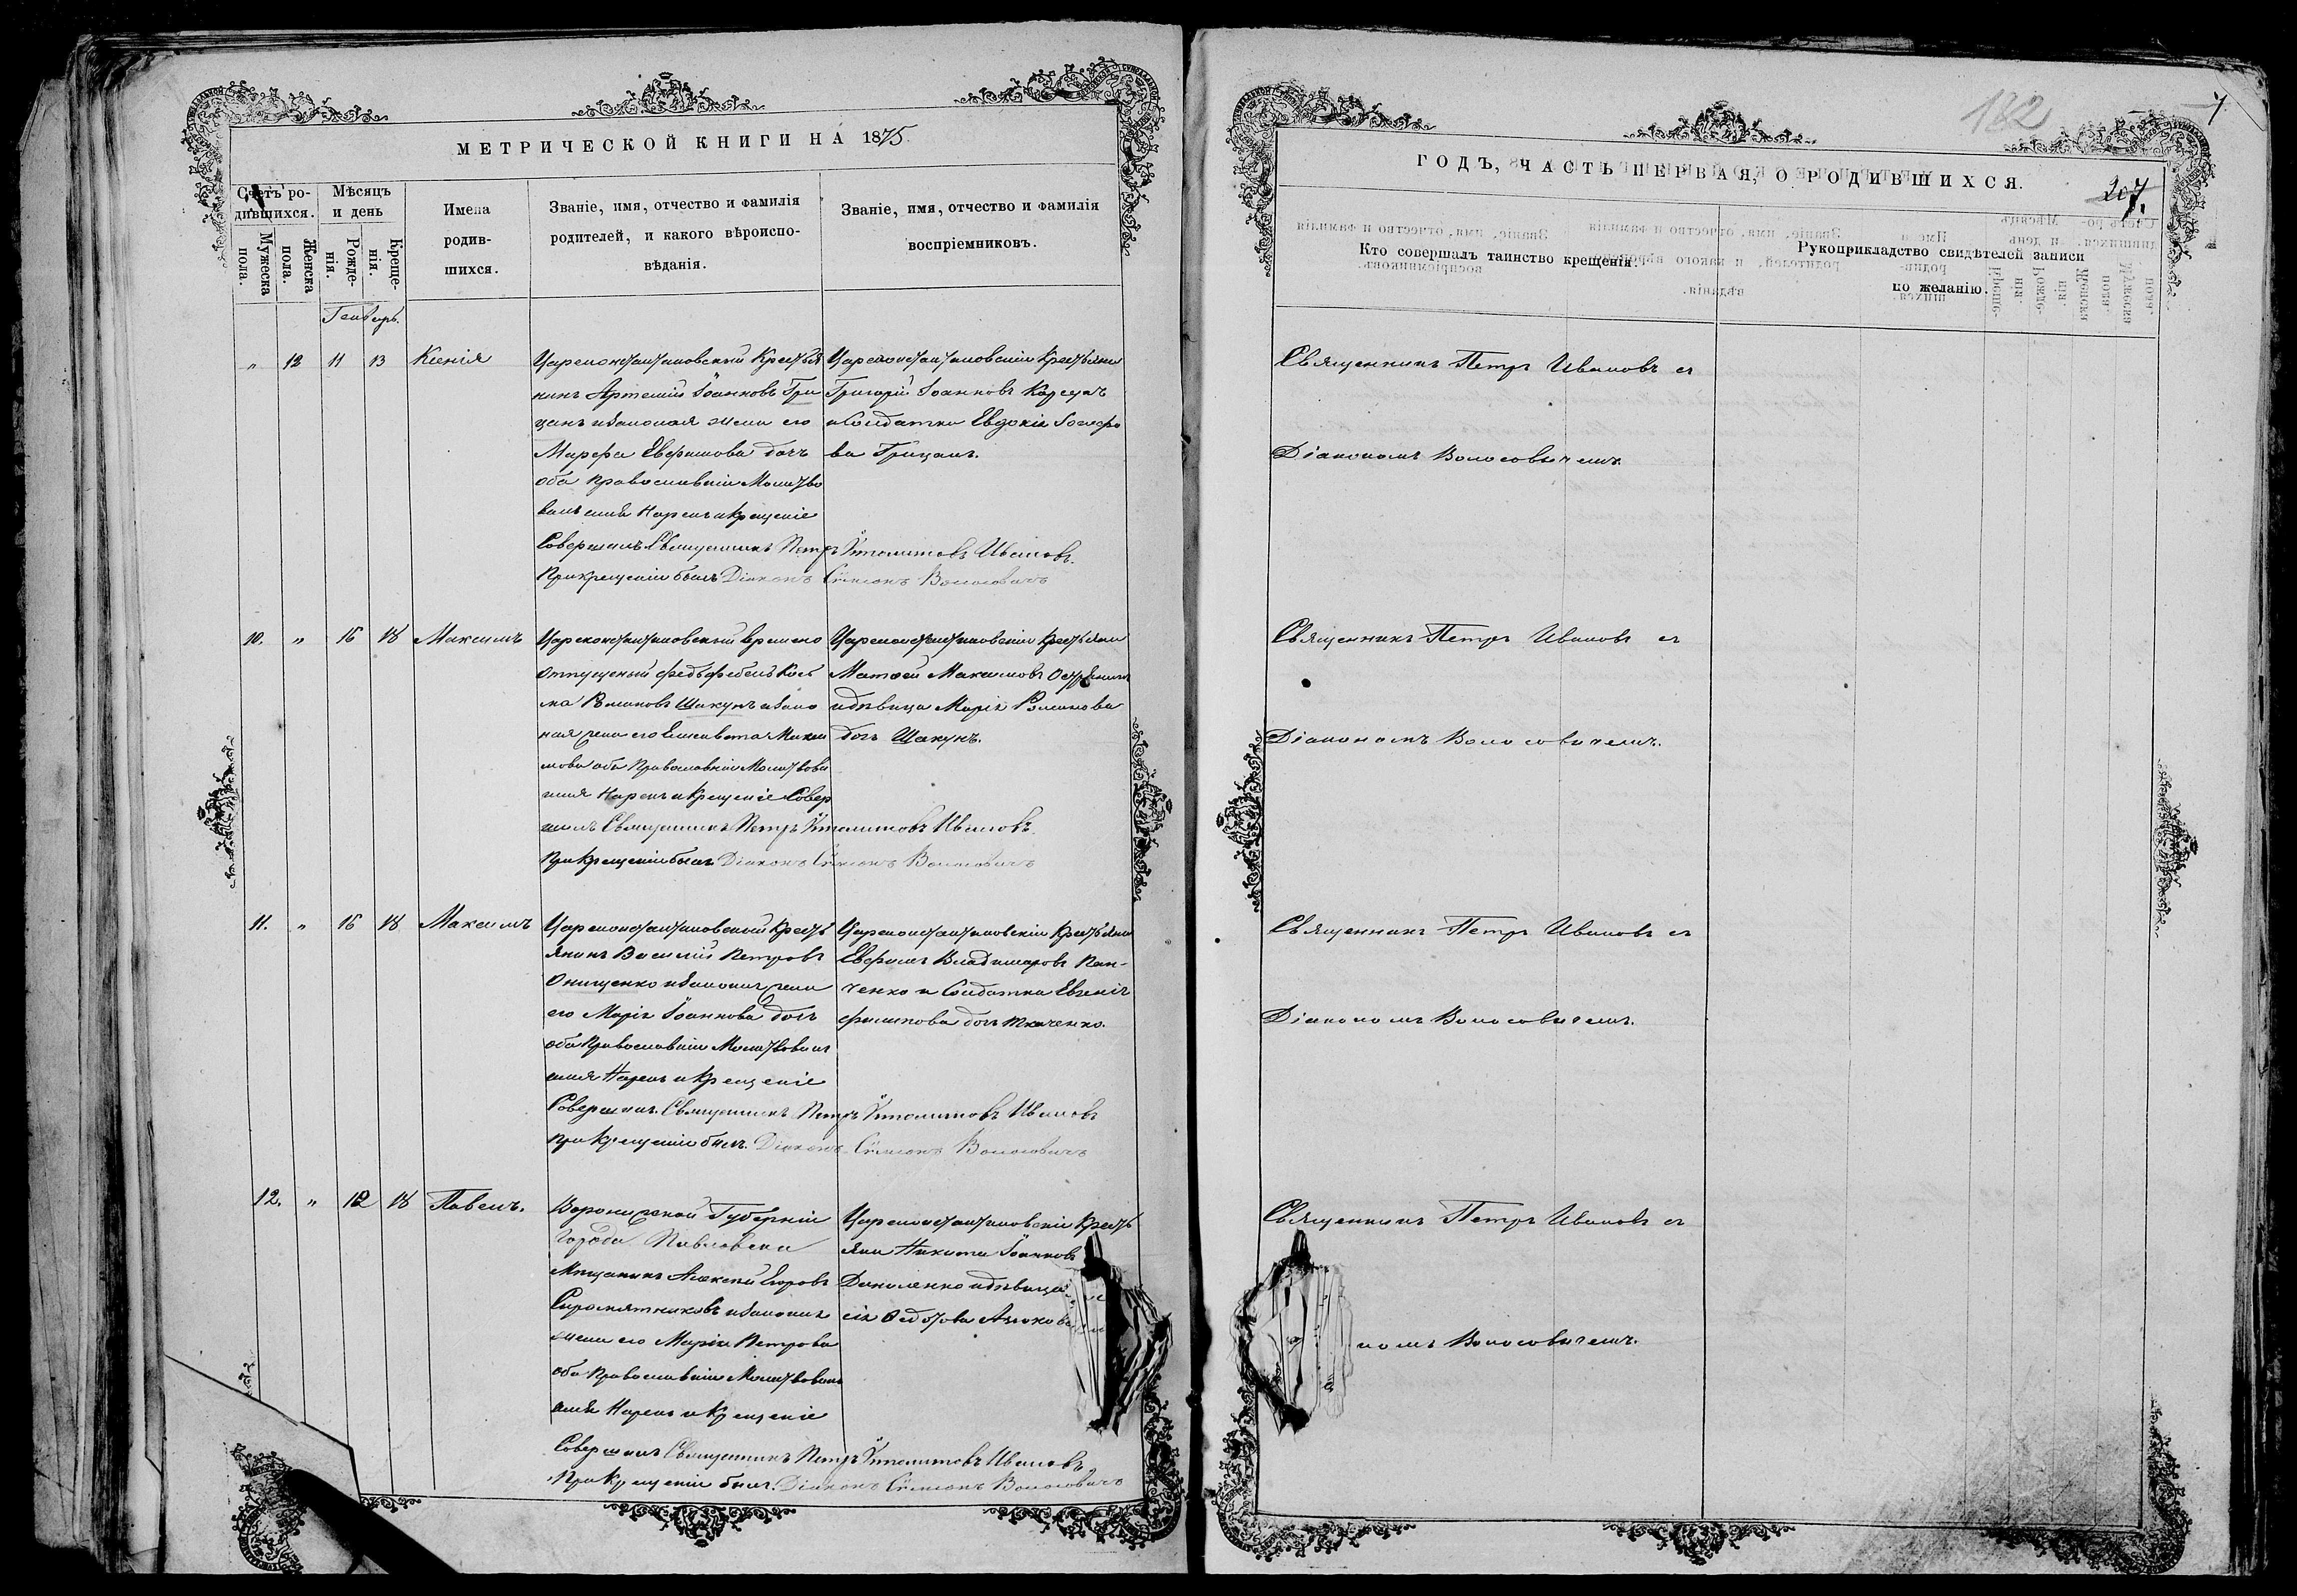 МЕТРИЧЕСКОЙ КНИГИ НА 1875
Счетъ ро-
дившихся.
Мѣсяцъ
и день
Имена
родив-
шихся.
Званіе, имя, отчество и фамилія
родителей, и какого вѣроиспо-
вѣданія.
Званіе, имя, отчество и фамилія
воспріемниковъ.
Мужеска
пола.
Женска
пола.
Рожде-
нія.
Креще-
нія.
Генварь.
" 12 11 13 Ксенія
Цареконстантиновскій Крестья
нинъ Артемій Іоанновъ Гри
цанъ изаконая жена его
Марфа дочь
оба православніи Молитво
Нарекъ и Крещеніе
Совершилъ Священникъ Петръ Ипполитовъ Ивановъ.
При крещеніи былъ Діаконъ Симеонъ Волосовичъ
Цареконстантиновскіи Крестьяни
Григорій Іоанновъ
и Солдатка Евдокія Іосифо
ва Грицанъ.
10. " 16 18 Максимъ
Цареконстантиновскій времено
отпущеный федьфебель Косъ
ма Романовъ Шакунъ изако
ная жена его Елисавета Макси
мова оба Православніи Молитвова
имя Нарекъ и Крещеніе Совер
шилъ Священникъ Петръ Ипполитовъ Ивановъ.
При Крещеніи былъ Діаконъ Симеонъ Волосовичъ
Цареконстантиновскіи Крестьяни
Матѳей Максимовъ
идѣвица Марія Романова
дочь Шакунъ.
11. " 16 18 Максимъ
Цареконстантиновскій Кресть
янинъ Василій Петровъ
Онищенко изаконая жена
его Марія Іоаннова дочь
оба Православніи Молитвовалъ
имя Нарекъ и Крещеніе
Совершилъ Священникъ Петръ Ипполитовъ Ивановъ
при Крещеніи былъ. Діаконъ Симеонъ Волосовичъ
Цареконстантиновскіи Крестьяни
Евфимъ Владимировъ Пан-
ченко и Солдатка Евгенія
филипова дочь Ткаченко.
12. " 12 18 Павелъ.
Воронежской Губерніи
Города Павловска
Мѣщанинъ Алексѣй Егоровъ
Сыромятниковъ изаконая
жена его Марія Петрова
оба Православніи Молитвовалъ
имя Нарекъ и Крещеніе
Совершилъ Священникъ Петръ Ипполитовъ Ивановъ
При Крещеніи былъ. Діаконъ Симеонъ Волосовичъ
Цареконстантиновскіи Кресть
яни Никита Іоанновъ
Даниленко идѣвица
182
ГОДЪ, ЧАСТЬ ПЕРВАЯ, О РОДИВШИХСЯ.
207.
Кто совершалъ таинство крещенія.
Рукоприкладство свидѣтелей записи
по желанію.
Священникъ Петръ Ивановъ съ
Діакономъ Волосовичемъ.
Священникъ Петръ Ивановъ съ
Діакономъ Волосовичемъ.
Священникъ Петръ Ивановъ съ
Діакономъ Волосовичемъ.
Священникъ Петръ Ивановъ съ
номъ Волосовичемъ.